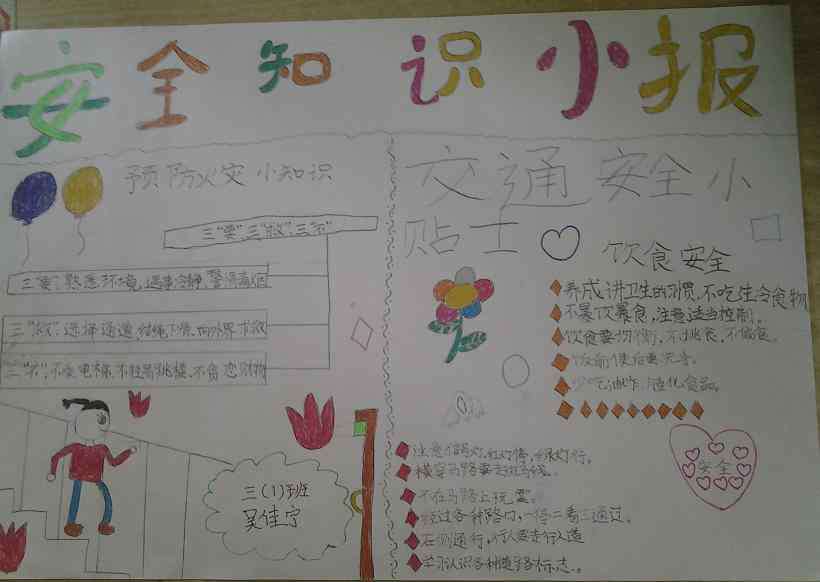 安全知识小报
预防火灾小知识
三“要”三“救”三“不”
三“要”:熟悉环境,遇事冷静,警惕毒烟
三“救”:选择通道,结绳下滑,向外界求救
三“不”:不乘电梯,不轻易跳楼,不贪恋财物
三(1)班
吴佳宁
交通安全小
贴士
饮食安全
养成讲卫生的习惯,不吃生冷食物
不暴饮暴食,注意适当控制。
饮食要均衡,不挑食,不偏食。
饭前便后要洗手。
少吃油炸、
食品。
注意信号灯,红灯停,绿灯行。
横穿马路要走斑马线。
不在马路上玩耍。
经过各种路口,一停二看三通过。
右侧通行,行人要走行人道
学习认识各种道路标志。
安全